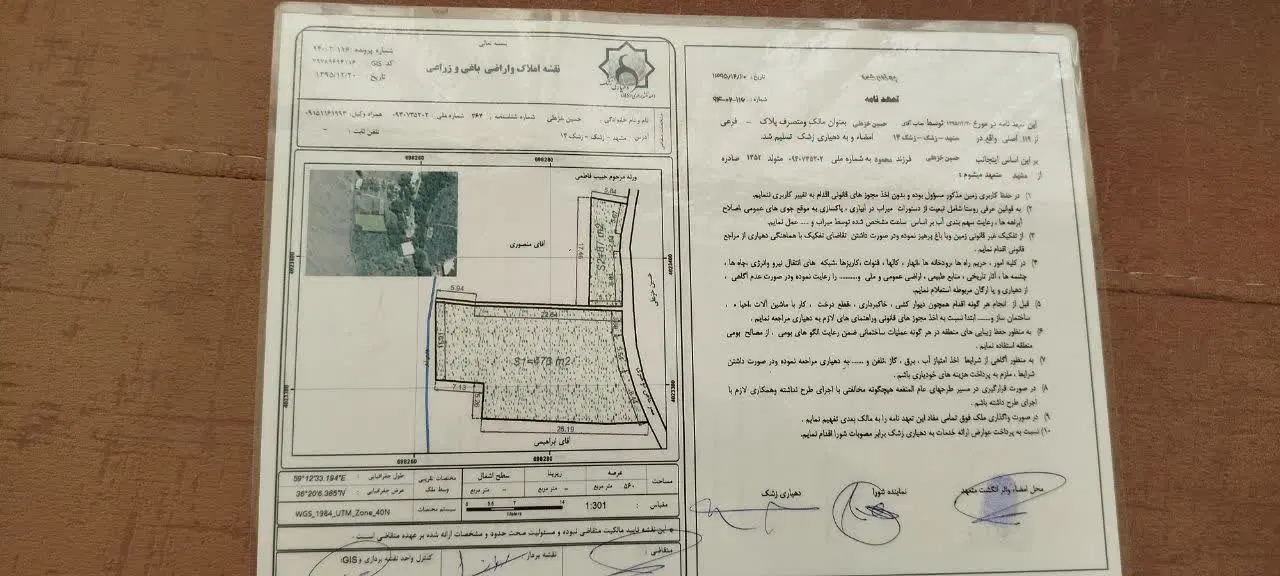 بسمه تعالی
نقشه املاک واراضی باغی و زراعی
شماره پرونده :
کد GIS :
تاریخ : ۱۳۹۵/۱۲/۲۰
نام و نام خانوادگی : حسین خزطی شماره شناسنامه : ۲۶۴ شماره ملی : ۰۹۳۰۷۳۵۲۰۲ همراه وکیل: ۰۹۱۵۱۱۶۱۹۹۳
آدرس مشهد - زشگ - زشگ ۱۴ تلفن ثابت : -
698260 698280
ورثه مرحوم حبیب فاطمی
5.84
آقای منصوری
17.49
حسین خزطی
5.94
22.64
S1=473 m2
7.13
5.26
26.19
آقای ابراهیمی
698260 698280
طول جغرافیایی : 59°12'33.194"E
عرض جغرافیایی : 36°20'6.385"N
مختصات تقریبی وسط ملک
سیستم مختصات WGS_1984_UTM_Zone_40N
مساحت
عرصه ۵۶۰ متر مربع
زیربنا - متر مربع
سطح اشغال - متر مربع
مقیاس : 1:301
این نقشه تایید مالکیت متقاضی نبوده و مسئولیت صحت حدود و مشخصات ارائه شده بر عهده متقاضی است .
متقاضی :
نقشه بردار :
کنترل واحد نقشه برداری و GIS:
تعهد نامه
تاریخ :
شماره :
این تعهد نامه در مورخ توسط جناب آقای حسین خزطی بعنوان مالک ومتصرف پلاک - فرعی
از ۱۱۹ اصلی واقع در مشهد - زشگ - زشگ ۱۴ امضاء و به دهیاری زشک تسلیم شد.
بر این اساس اینجانب حسین خزطی فرزند محمود به شماره ملی ۰۹۳۰۷۳۵۲۰۲ متولد ۱۳۵۲ صادره
از مشهد متعهد میشوم :
۱) در حفظ کاربری زمین مذکور مسؤول بوده و بدون اخذ مجوز های قانونی اقدام به تغییر کاربری ننمایم.
۲) به قوانین عرفی روستا شامل تبعیت از دستورات میراب در آبیاری ، پاکسازی به موقع جوی های عمومی ،اصلاح
آبراهه ها ، رعایت سهم بندی آب بر اساس ساعت مشخص شده توسط میراب و .... عمل نمایم.
۳) از تفکیک غیر قانونی زمین ویا باغ پرهیز نموده ودر صورت داشتن تقاضای تفکیک با هماهنگی دهیاری از مراجع
قانونی اقدام نمایم.
۴) در کلیه امور ، حریم راه ها ،رودخانه ها ،انهار ، کالها ، قنوات ،کاریزها ،شبکه های انتقال نیرو وانرژی ،چاه ها ،
چشمه ها ، آثار تاریخی ، منابع طبیعی ، اراضی عمومی و ملی و........ را رعایت نموده ودر صورت عدم آگاهی ،
از دهیاری و یا ارگان مربوطه استعلام نمایم.
۵) قبل از انجام هر گونه اقدام همچون دیوار کشی ، خاکبرداری ، قطع درخت ، کار با ماشین آلات ،احیا ء ،
ساختمان ساز و...... ابتدا نسبت به اخذ مجوز های قانونی وراهنمای های لازم به دهیاری مراجعه نمایم .
۶) به منظور حفظ زیبایی های منطقه در هر گونه عملیات ساختمانی ضمن رعایت الگو های بومی ، از مصالح بومی
منطقه استفاده نمایم .
۷) به منظور آگاهی از شرایط اخذ امتیاز آب ، برق ، گاز ،تلفن و ...... به دهیاری مراجعه نموده ودر صورت داشتن
شرایط ، ملزم به پرداخت هزینه های خودیاری باشم .
۸) در صورت قرارگیری در مسیر طرحهای عام المنفعه هیچگونه مخالفتی با اجرای طرح نداشته وهمکاری لازم با
اجرای طرح داشته باشم .
۹) در صورت واگذاری ملک فوق تمامی مفاد این تعهد نامه را به مالک بعدی تفهیم نمایم .
۱۰) نسبت به پرداخت عوارض ارائه خدمات به دهیاری زشک برابر مصوبات شورا اقدام نمایم.
محل امضاء واثر انگشت متعهد
نماینده شورا
دهیاری زشک